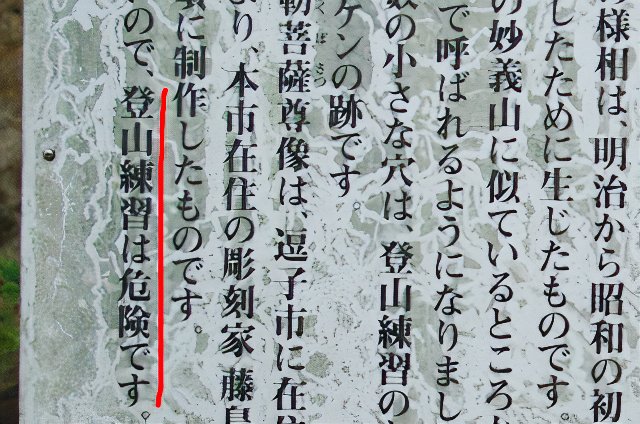 様相は、明治から昭和の初
したために生じたものです。
の妙義山に似ているところ
で呼ばれるようになりまし
数の小さな穴は、登山練習の
ケンの跡です。
勒菩薩尊像は、逗子市に在住
くぼさつ
より 本市在住の彫刻家 藤島
に制作したものです。
ので、登山練習は危険です。